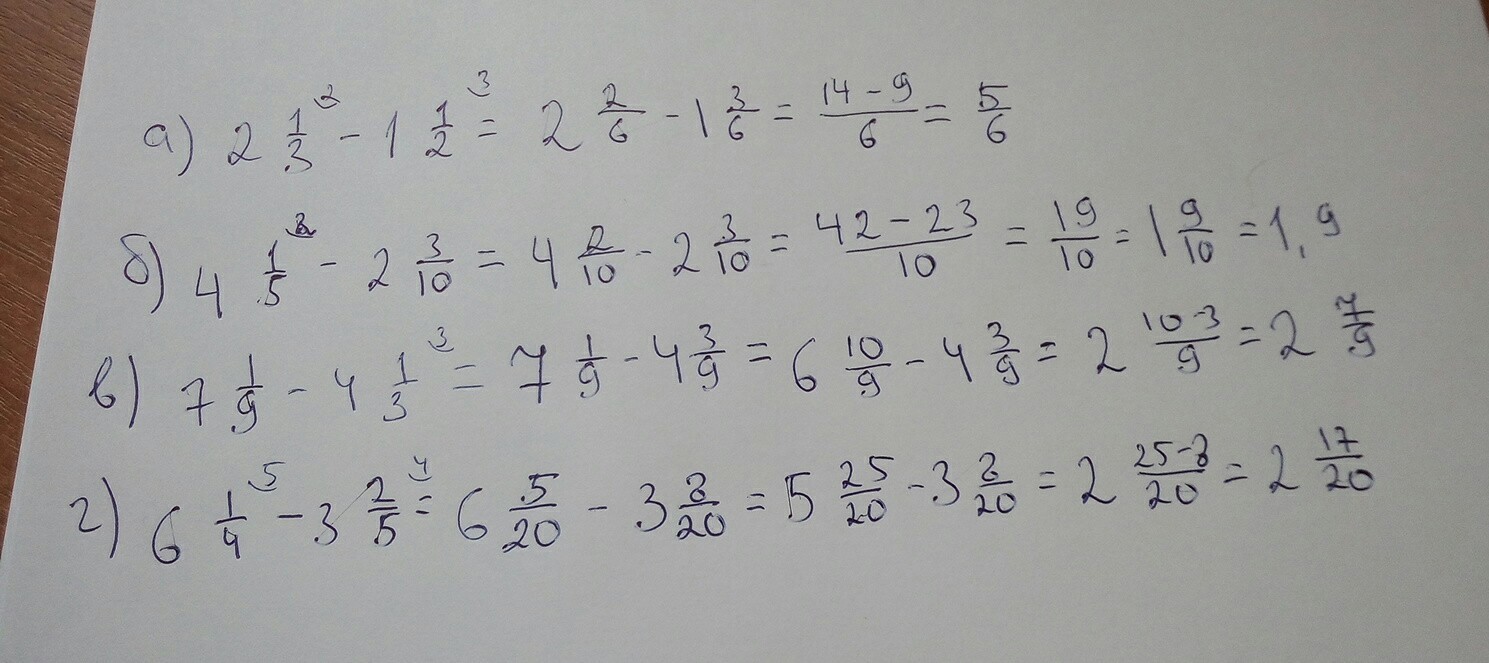 а) 2 1/3 ² - 1 1/2 ³ = 2 2/6 - 1 3/6 = (14 - 9)/6 = 5/6
б) 4 1/5 ² - 2 3/10 = 4 2/10 - 2 3/10 = (42 - 23)/10 = 19/10 = 1 9/10 = 1,9
в) 7 1/9 - 4 1/3 ³ = 7 1/9 - 4 3/9 = 6 10/9 - 4 3/9 = 2 (10-3)/9 = 2 7/9
г) 6 1/4 ⁵ - 3 2/5 ⁴ = 6 5/20 - 3 8/20 = 5 25/20 - 3 8/20 = 2 (25-8)/20 = 2 17/20